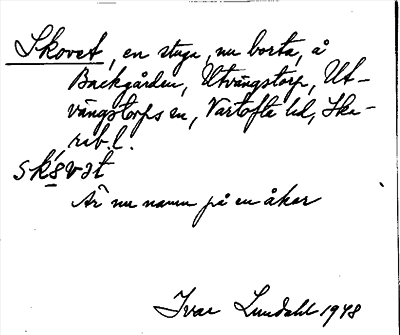 Skovet, en stuga, nu borta, å
Backgården, Utvängstorp, Ut-
vängstorps sn, Vartofta hd, Ska-
rab. l.
Är nu namn på en åker
Ivar Lundahl 1948